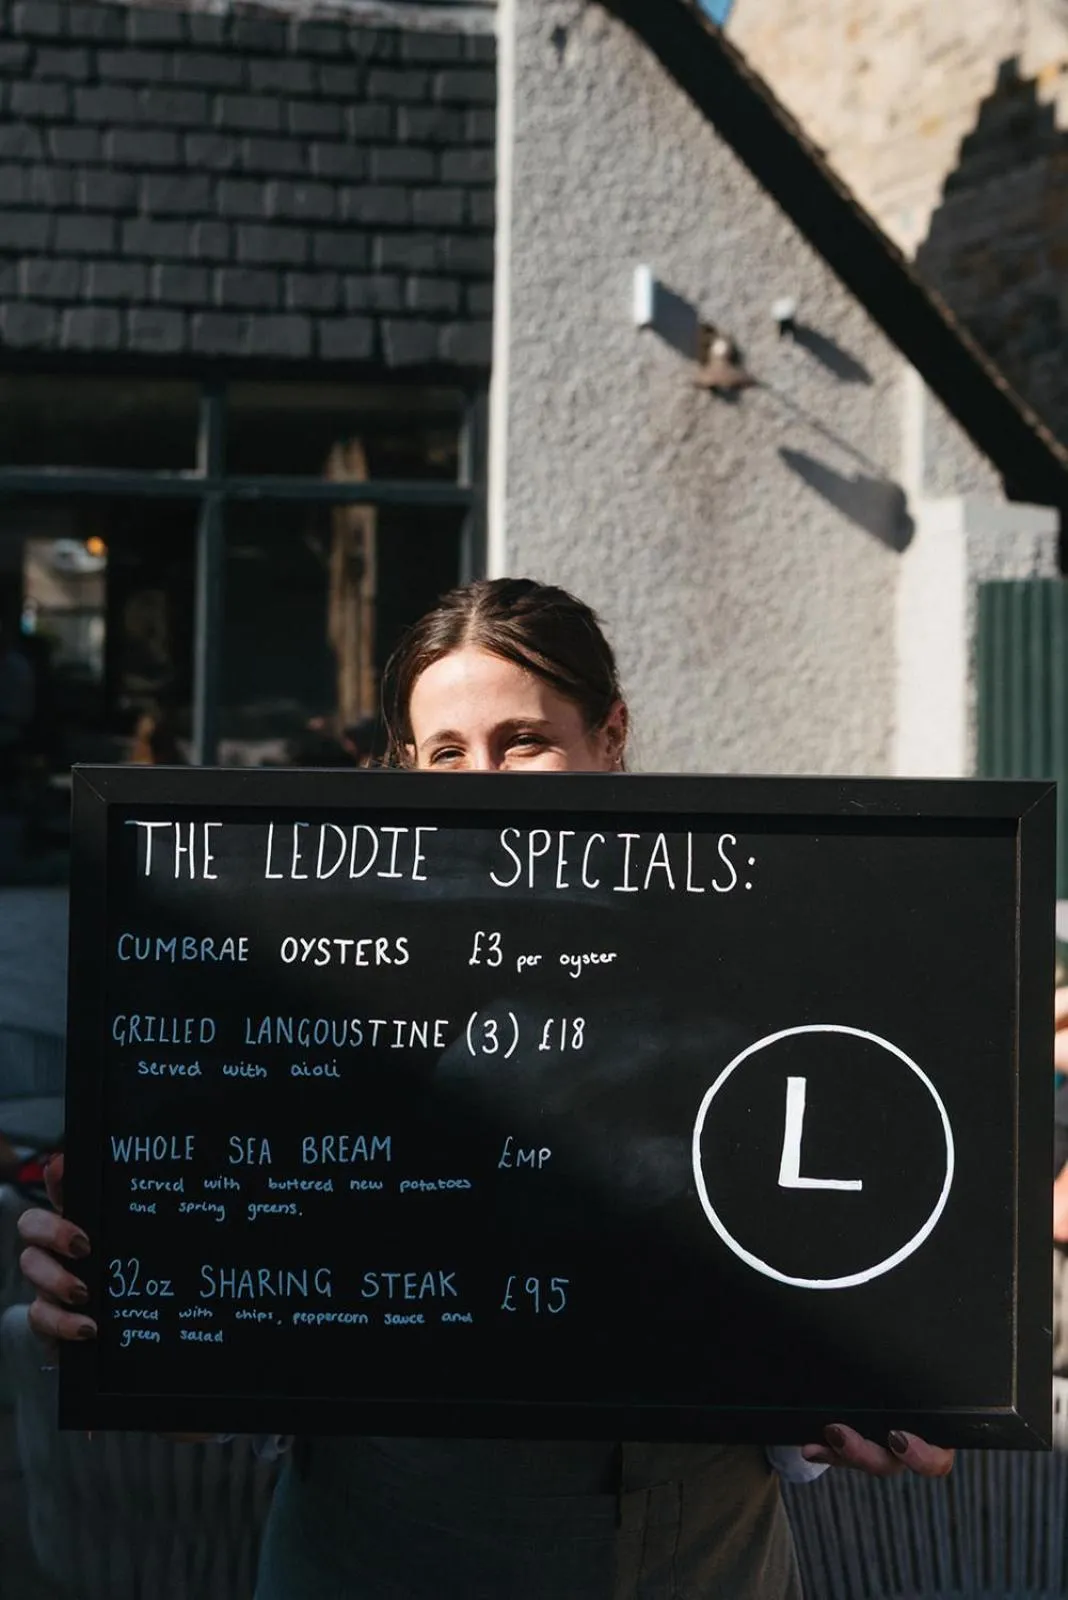 THE LEDDIE SPECIALS:
CUMBRAE OYSTERS £3 per oyster
GRILLED LANGOUSTINE (3) £18
Served with aioli
WHOLE SEA BREAM £MP
served with buttered new potatoes
and spring greens.
32oz SHARING STEAK £95
served with chips, peppercorn sauce and
green salad
L